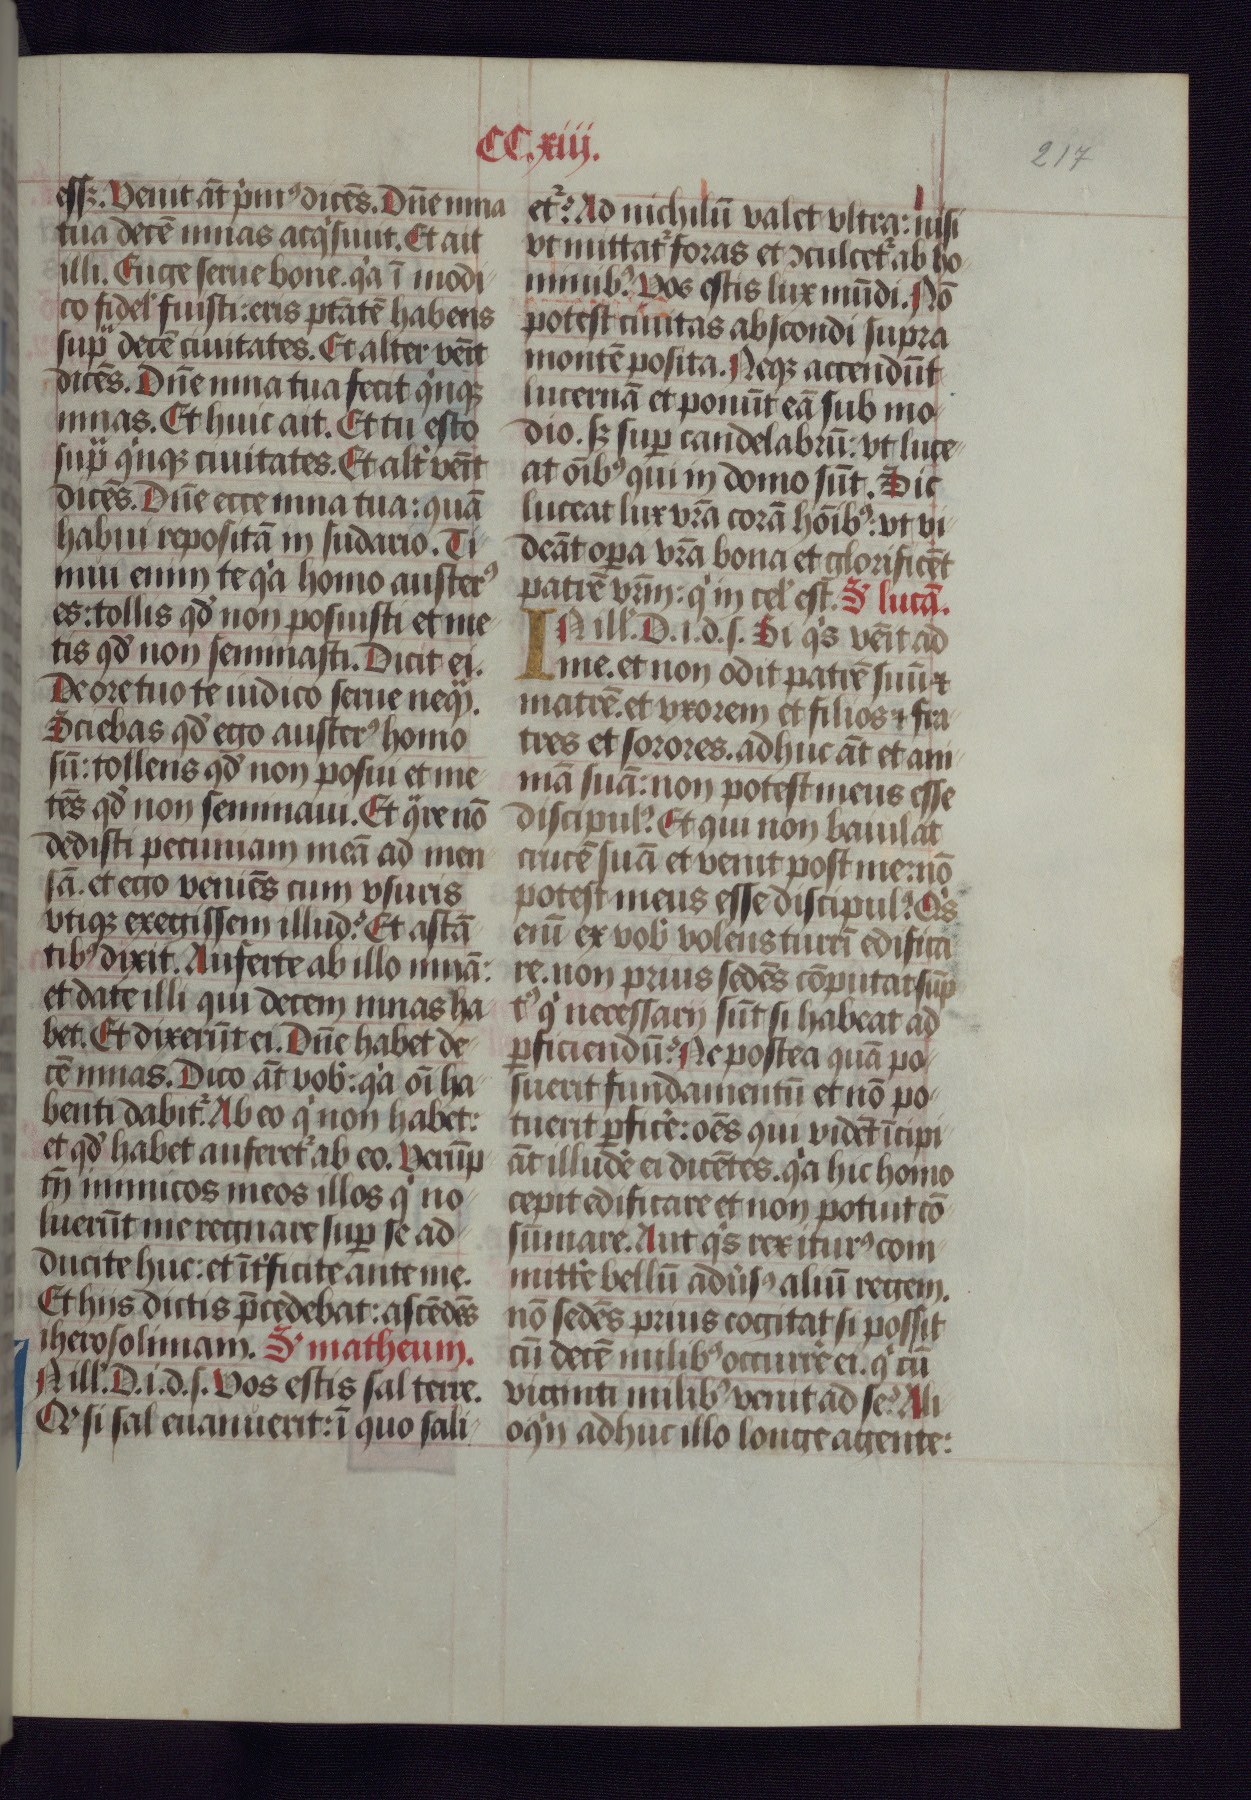 CC.xiii.
217
essꝫ. Venit āt p̍mꝰ dicēs. Dn̄e mna
tua decē mnas acq̍siuit. Et ait
illi. Euge serue bone. q̍a ī modi
co fidel̓ fuisti: eris ptātē habens
sup̱ decē ciuitates. Et alter vēit
dicēs. Dn̄e mna tua fecit q̍nqꝫ
mnas. Et huic ait. Et tu esto
sup̱ q̍nqꝫ ciuitates. Et alt̓ vēit
dicēs. Dn̄e ecce mna tua: quā
habui repositā in sudario. Ti
mui enim te q̍a homo austerꝰ
es: tollis qd̓ non posuisti et me
tis qd̓ non seminasti. Dicit ei.
De ore tuo te iudico serue neq̄.
Sciebas qd̓ ego austerꝰ homo
sū: tollens qd̓ non posui et me
tēs qd̓ non seminaui. Et q̄re nō
dedisti pecuniam meā ad men
sā. et ego veniēs cum vsuris
vtiqꝫ exegissem illud? Et astā
tibꝰ dixit. Auferte ab illo mnā:
et date illi qui decem mnas ha
bet. Et dixerūt ei. Dn̄e habet de
cē mnas. Dico āt vob̓: q̍a oī ha
benti dabit̓. Ab eo q̍ non habet:
et qd̓ habet auferet̓ ab eo. Verūp
tn̄ inimicos meos illos q̍ no
luerūt me regnare sup̱ se ad
ducite huc: et īt̓ficite ante me.
Et hijs dictis p̄cedebat: ascēdēs
iherosolimam. S' matheum.
N ill̓. D. i. d. s. Vos estis sal terre.
Qd̓ si sal euanuerit: ī quo sali
et̓? Ad nichilū valet vltra: nisi
vt mittat̓ foras et ꝯculcet̓ ab ho
minibꝰ. Vos estis lux mūdi. Nō
potest ciuitas abscondi supra
montē posita. Neqꝫ accendūt
lucernā et ponūt eā sub mo
dio. sꝫ sup̱ candelabrū: vt luce
at oībꝰ qui in domo sūt. Sic
luceat lux vr̄a corā hoībꝰ: vt vi
deāt op̱a vr̄a bona et glorificēt
patrē vrm̄: q̍ in cel̓ est. S' lucā.
IN ill̓. D. i. d. s. Si q̍s vēit ad
me. et non odit patrē suū ⁊
matrē. et vxorem et filios ⁊ fra
tres et sorores. adhuc āt et ani
mā suā: non potest meus esse
discipulꝰ. Et qui non baiulat
crucē suā et venit post me: nō
potest meus esse discipulꝰ. Q̍s
enī ex vob̓ volens turrī edifica
re. non prius sedēs cōputat sūp
tꝰ q̍ necessarij sūt si habeat ad
ꝑficiendū? Ne postea quā po
suerit fundamentū et nō po
tuerit ꝑfic̓e: oēs qui vidēt īcipi
āt illud̓e ei dicētes. q̍a hic homo
cepit edificare et non potuit cō
sūmare. Aut q̍s rex iturꝰ com
mitt̓e bellū aduīsꝰ aliū regem.
nō sedēs prius cogitat si possit
cū decē milibꝰ occurr̓e ei. q̍ cū
viginti milibꝰ venit ad se? Ali
oq̍n adhuc illo longe agente: